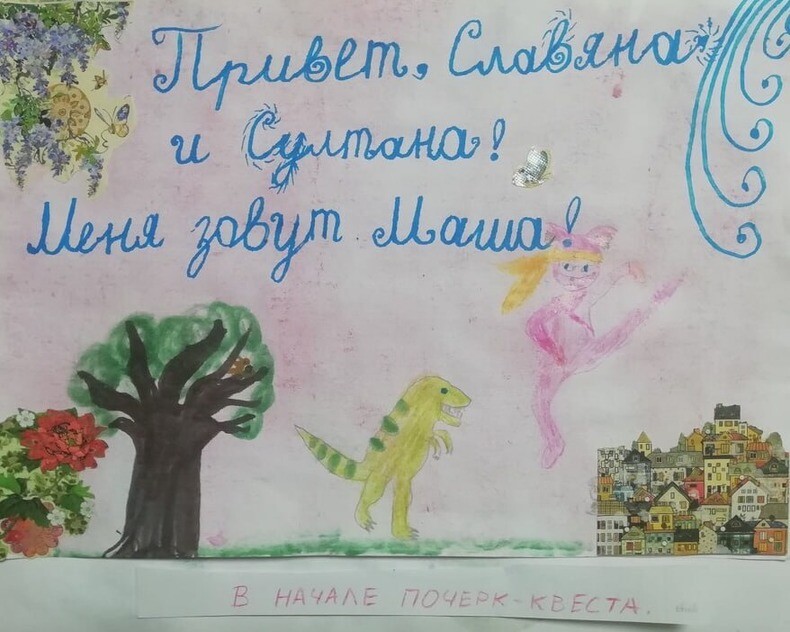 Привет, Славяна
и Султана!
Меня зовут Маша!
В НАЧАЛЕ ПОЧЕРК-КВЕСТА.